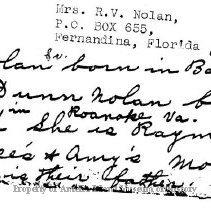 Mrs. R.V. Nolan,
P.O. BOX 655,
Fernandina, Florida
lan Sr. born in Ba
Dunn Nolan b
in Roanoke Va.
She is Raym
ee's & Amy's Mo
their father
Property of Amelia Island Museum of History